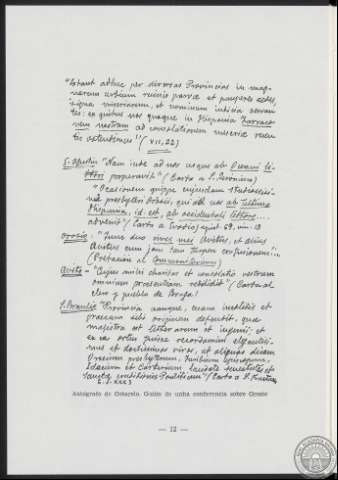 "Extant adhuc per diversas Provincias in mag-
narum urbium ruinis parvæ et pauperes sedes,
signa miseriarum, et nominum indicia servan-
tes: ex quibus nos quoque in Hispania Tarraco-
nem nostram ad consolationem miseriæ recen-
tis ostendimus" (VII, 22)
S. Agustin "Nam inde ad nos usque ab Oceani li-
ttore properavit" (Carta a S. Jerónimo)
"Occasionem quippe cujusdam
presbyteri Orosii, qui ad nos ab ultima
Hispania, id est, ab occidentali littore...
advenit" (Carta a Evodio) epist. 69,
Orosio. "Tunc duo cives mei Avitus, et alius
Avitus cum jam tam
(Prefación al Commonitorium)
Avito - "Cujus mihi charitas et consolatio vestram
omnium præsentiam reddidit" (Carta al
clero y pueblo de Braga)
S. Braulio "Provincia namque, quam incolitis et
græcam sibi originem defendit, quæ
magistra est litterarum et ingenii; et
ex ea ortos fuisse recordamini elegantissi-
mos et doctissimos viros, ut aliquos dicam
Orosium presbyterum, Turibium Episcopum,
Idatium et Carterium laudatæ senectutis et
sanctæ Pontificem" (Carta a S. Fructuoso
Autógrafo de Octavio. Guión de unha conferencia sobre Orosio
— 12 —